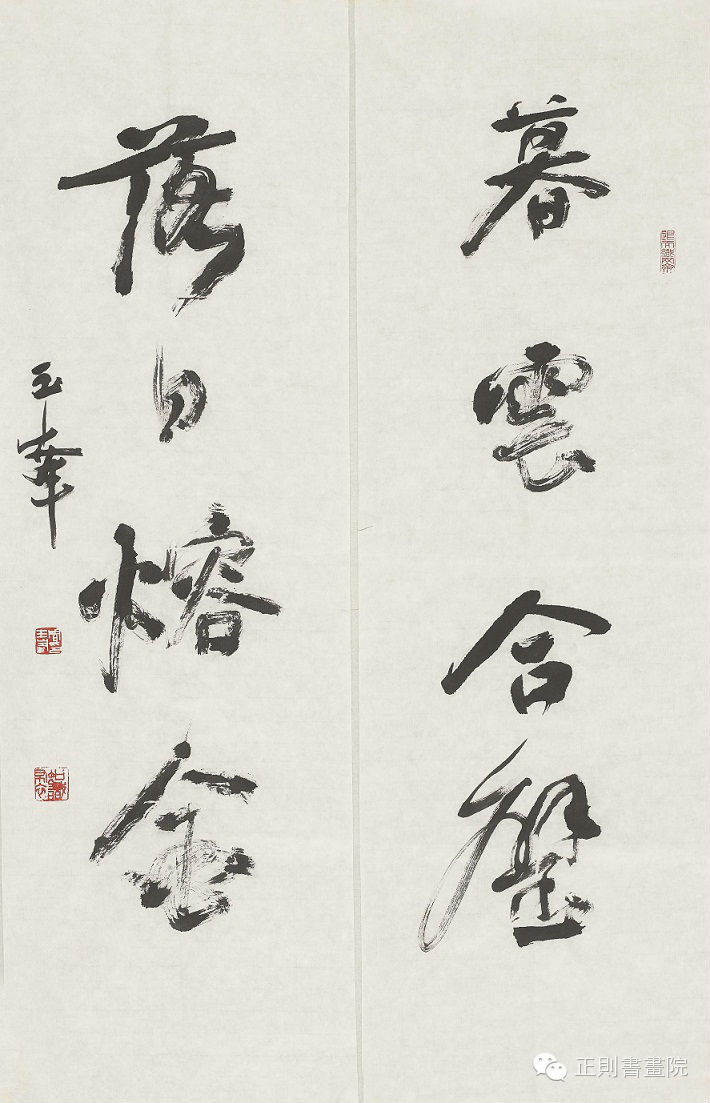 暮雲合璧
落日熔金
玉華
正則書畫院